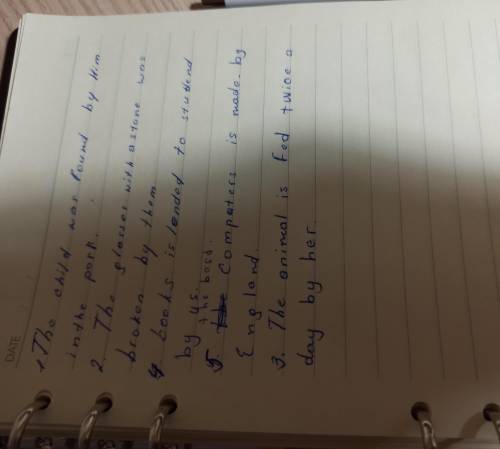 DATE
1. The child was found by Him
in the park.
2. The glasses with a stone was
broken by them
4 books is lended to studend
by us.
the best.
5. The Compaters is made by
England.
3. The animal is fed twice a
day by her.